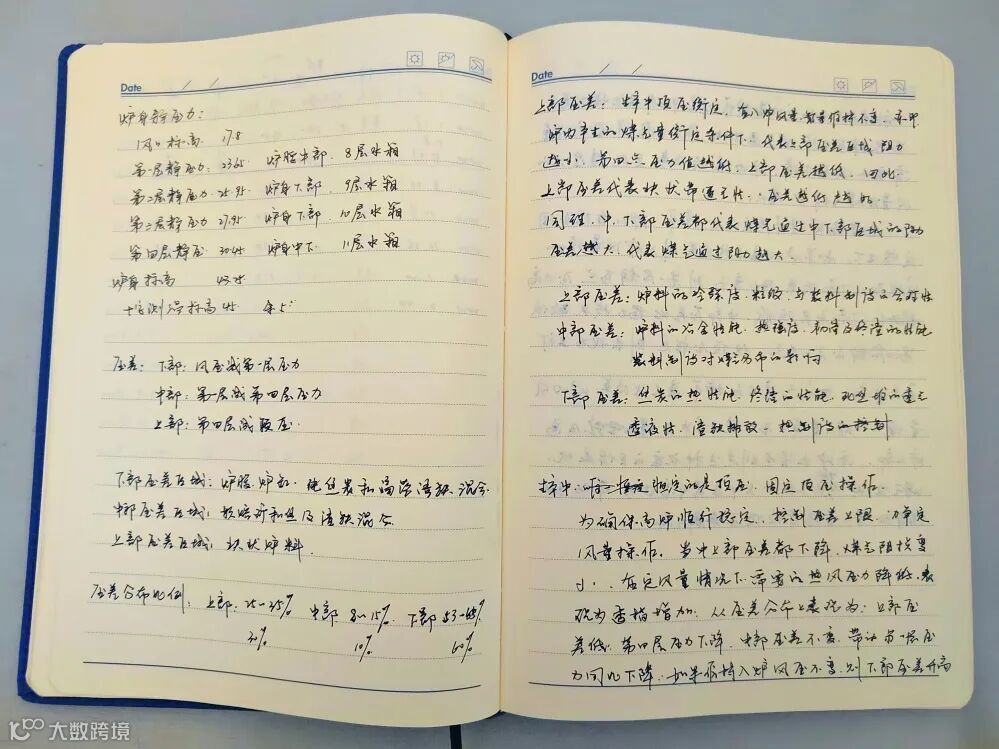 Date / /
炉身静压力:
风口标高 17.8
第一层静压力: 23.65 炉腔中部, 8层水箱
第二层静压力: 25.95 炉身下部, 9层水箱
第三层静压力 27.95 炉身下部, 10层水箱
第四层静压 30.45 炉身中下, 11层水箱
炉身标高 43.75
十字测温标高45
压差: 下部: 风压减第一层压力
中部: 第一层减第四层压力
上部: 第四层减顶压.
下部压差区域: 炉腔.炉缸. 焦炭和渣铁混合
中部压差区域: 软熔带和焦及渣铁混合
上部压差区域: 块状炉料.
压差分布比例: 上部: 25~35% 中部 8~15% 下部 53~65%
30% 10% 60%
Date / /
上部压差: 生产中顶压衡定, 入炉风量保持不变,
炉内产生的煤气量衡定条件下, 代表上部压差区域阻力
越小. 第四点压力值越低, 上部压差越低, 因此
上部压差代表块状带透气性. 压差越低越好.
同理. 中.下部压差都代表煤气通过中下部区域的阻力
压差越大. 代表煤气通过阻力越大
上部压差: 炉料的冷强度, 粒级, 与装料制度的合理性
中部压差: 炉料的冶金性能, 热强度, 初渣及终渣的性能
装料制度对煤气分布的影响
下部压差: 焦炭的热性能, 终渣的性能,
透液性, 渣铁排放, 热制度的控制
操中. 恒定的是顶压, 固定顶压操作.
为确保高炉顺行稳定, 控制压差上限, 力争定
风量操作. 当中上部压差都下降, 煤气阻损变
小. 在定风量情况下. 需要的热风压力降低, 表
现为透指增加. 从压差分布上表现为: 上部压
差低. 第四层压力下降, 中部压差不变. 带动第一层压
力同比下降, 如果保持入炉风压不变, 则下部压差升高
大数跨境